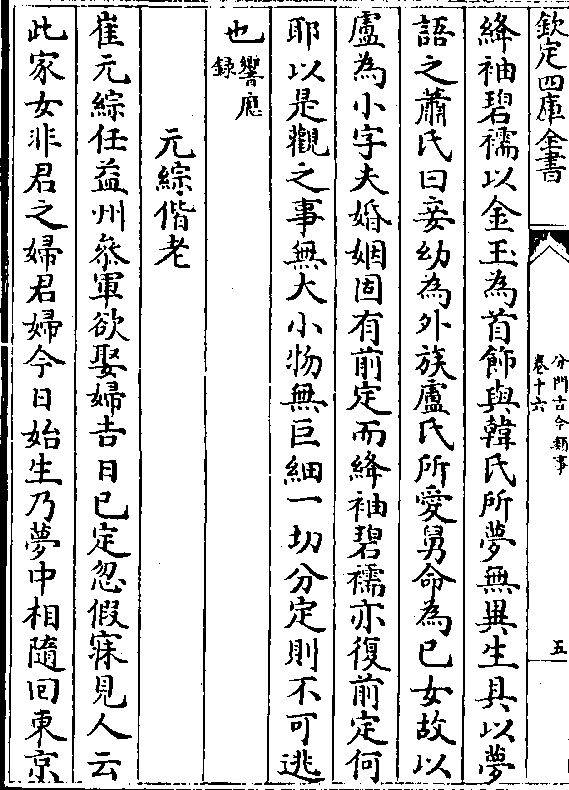 欽定四庫全書
分門古今類事
卷十六
五
絳袖碧襦以金玉為首飾與韓氏所夢無異生具以夢
語之蕭氏曰妾幼為外族盧氏所愛舅命為已女故以
盧為小字夫婚姻固有前定而絳袖碧襦亦復前定何
耶以是觀之事無大小物無巨細一切分定則不可逃
也響應
錄
元綜偕老
崔元綜任益州叅軍欲娶婦吉日已定忽假寐見人云
此家女非君之婦君婦今日始生乃夢中相隨回東京